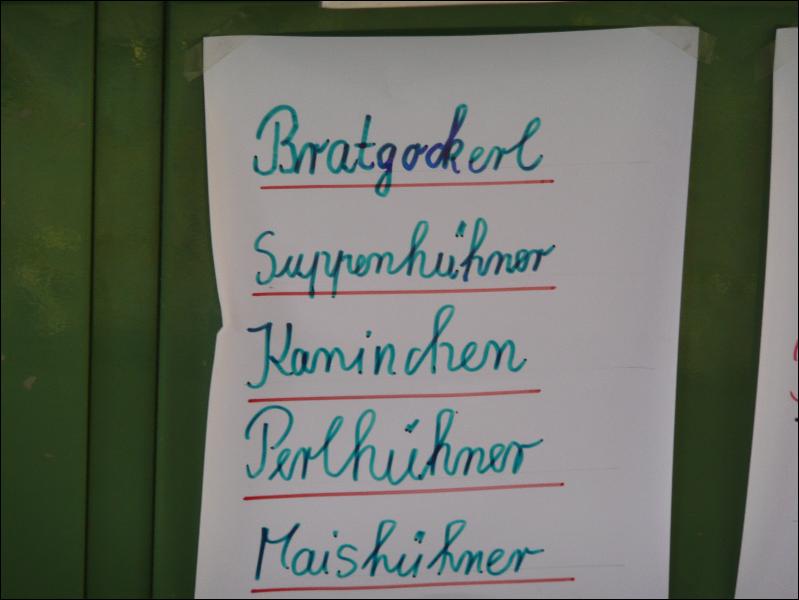 Bratgockerl
Suppenhühner
Kaninchen
Perlhühner
Maishühner